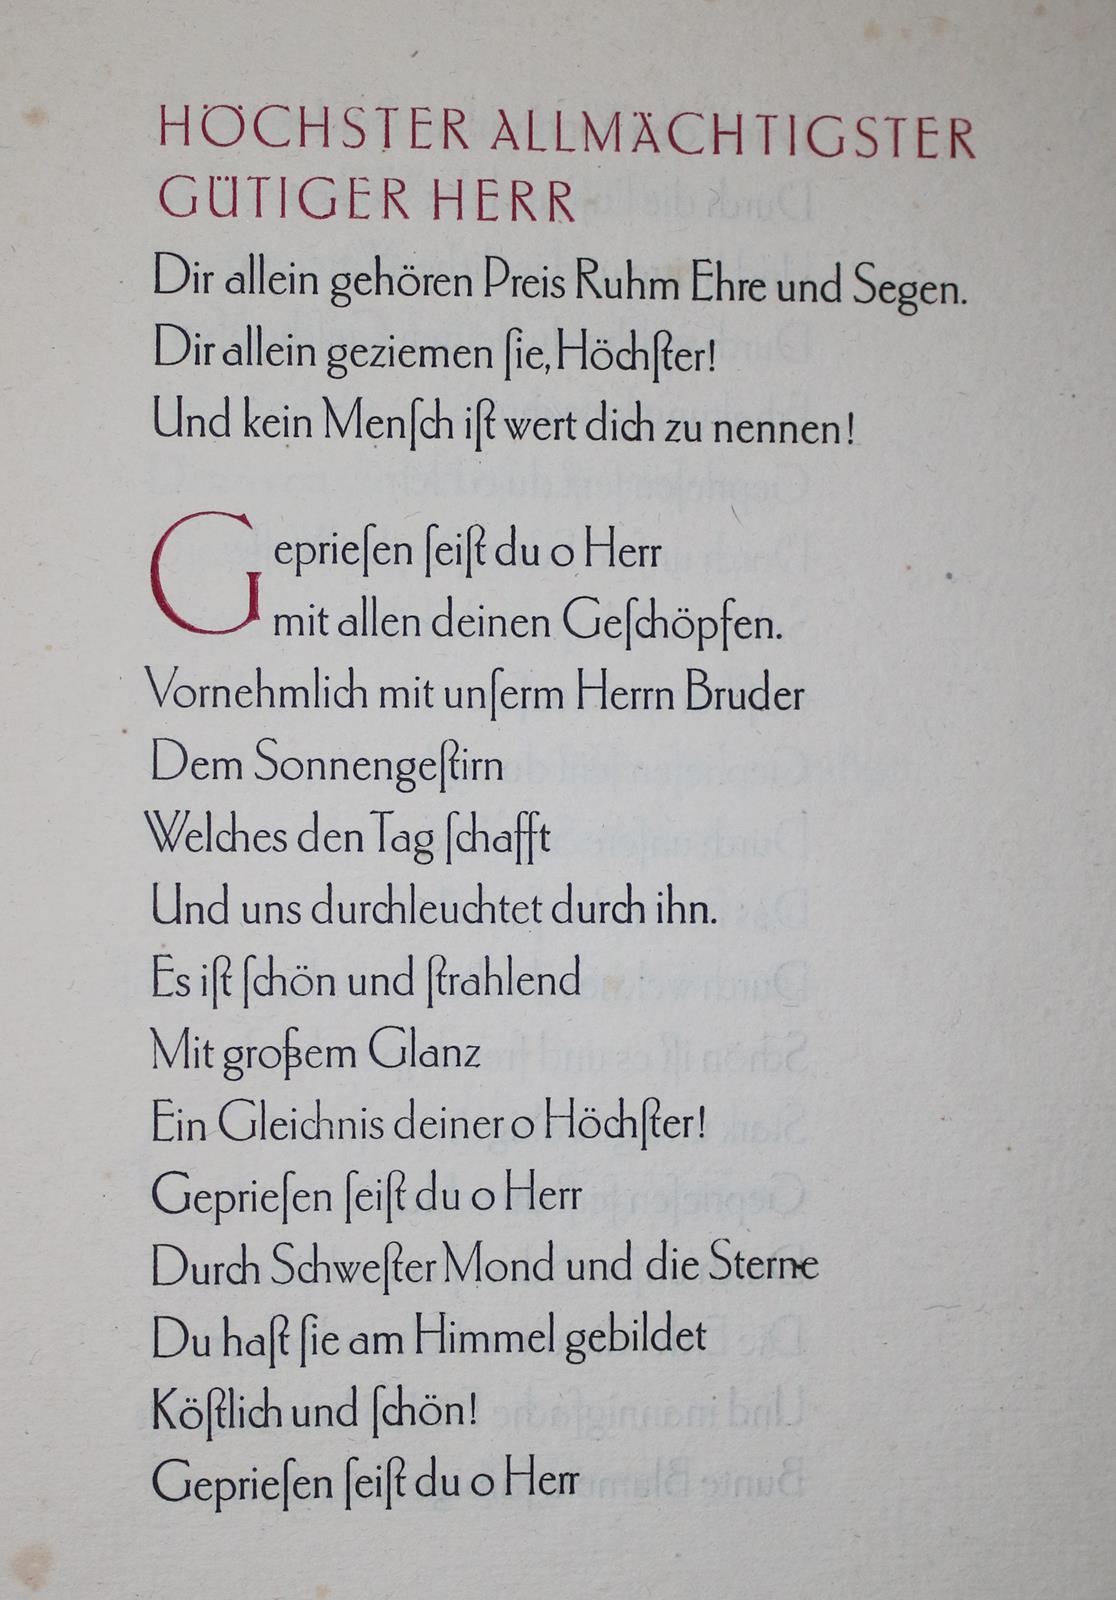 HÖCHSTER ALLMÄCHTIGSTER
GÜTIGER HERR
Dir allein gehören Preis Ruhm Ehre und Segen.
Dir allein geziemen ſie, Höchſter!
Und kein Menſch iſt wert dich zu nennen!
Geprieſen ſeiſt du o Herr
mit allen deinen Geſchöpfen.
Vornehmlich mit unſerm Herrn Bruder
Dem Sonnengeſtirn
Welches den Tag ſchafft
Und uns durchleuchtet durch ihn.
Es iſt ſchön und ſtrahlend
Mit großem Glanz
Ein Gleichnis deiner o Höchſter!
Geprieſen ſeiſt du o Herr
Durch Schweſter Mond und die Sterne
Du haſt ſie am Himmel gebildet
Köſtlich und ſchön!
Geprieſen ſeiſt du o Herr